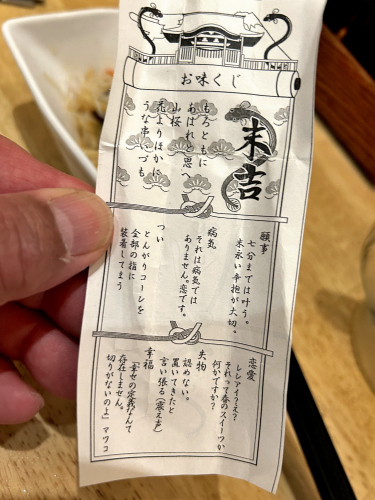 お味くじ
末吉
もろともに
あはれと思へ
山桜
花よりほかに
うな串いづも
願事
七分までは叶う。
末永い辛抱が大切。
病気
それは病気では
ありません。恋です。
つい
とんがりコーンを
全部の指に
装着してまう
恋愛
レレアイ?え?
それって春のスイーツか
何かですか?
失物
認めない。
置いてきたと
言い張る(震え声)
幸福
「幸せの定義なんて
存在しません。
切りがないのよ」マツコ